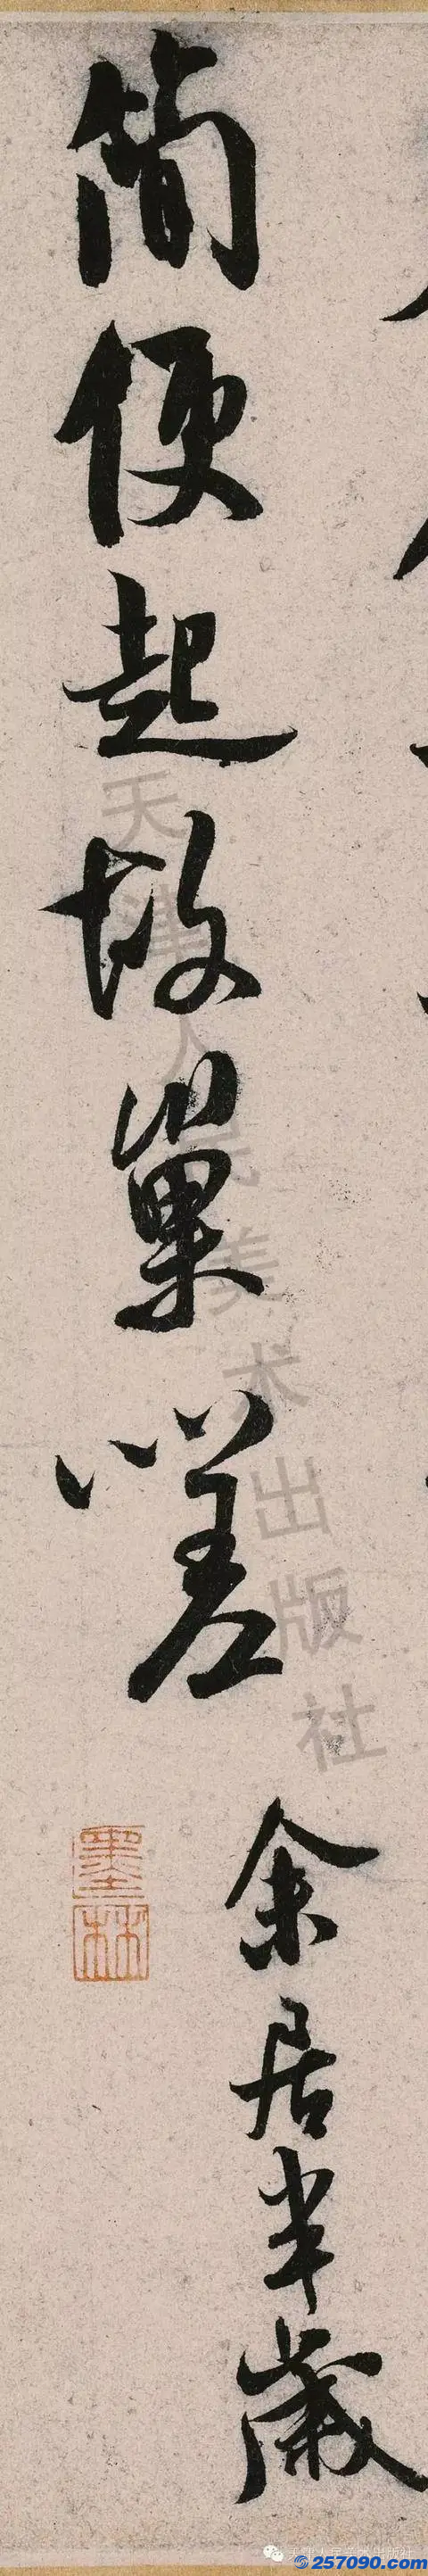 簡便起故巢嗟
余居半歲
墨林
天津人民美术出版社
257090.com